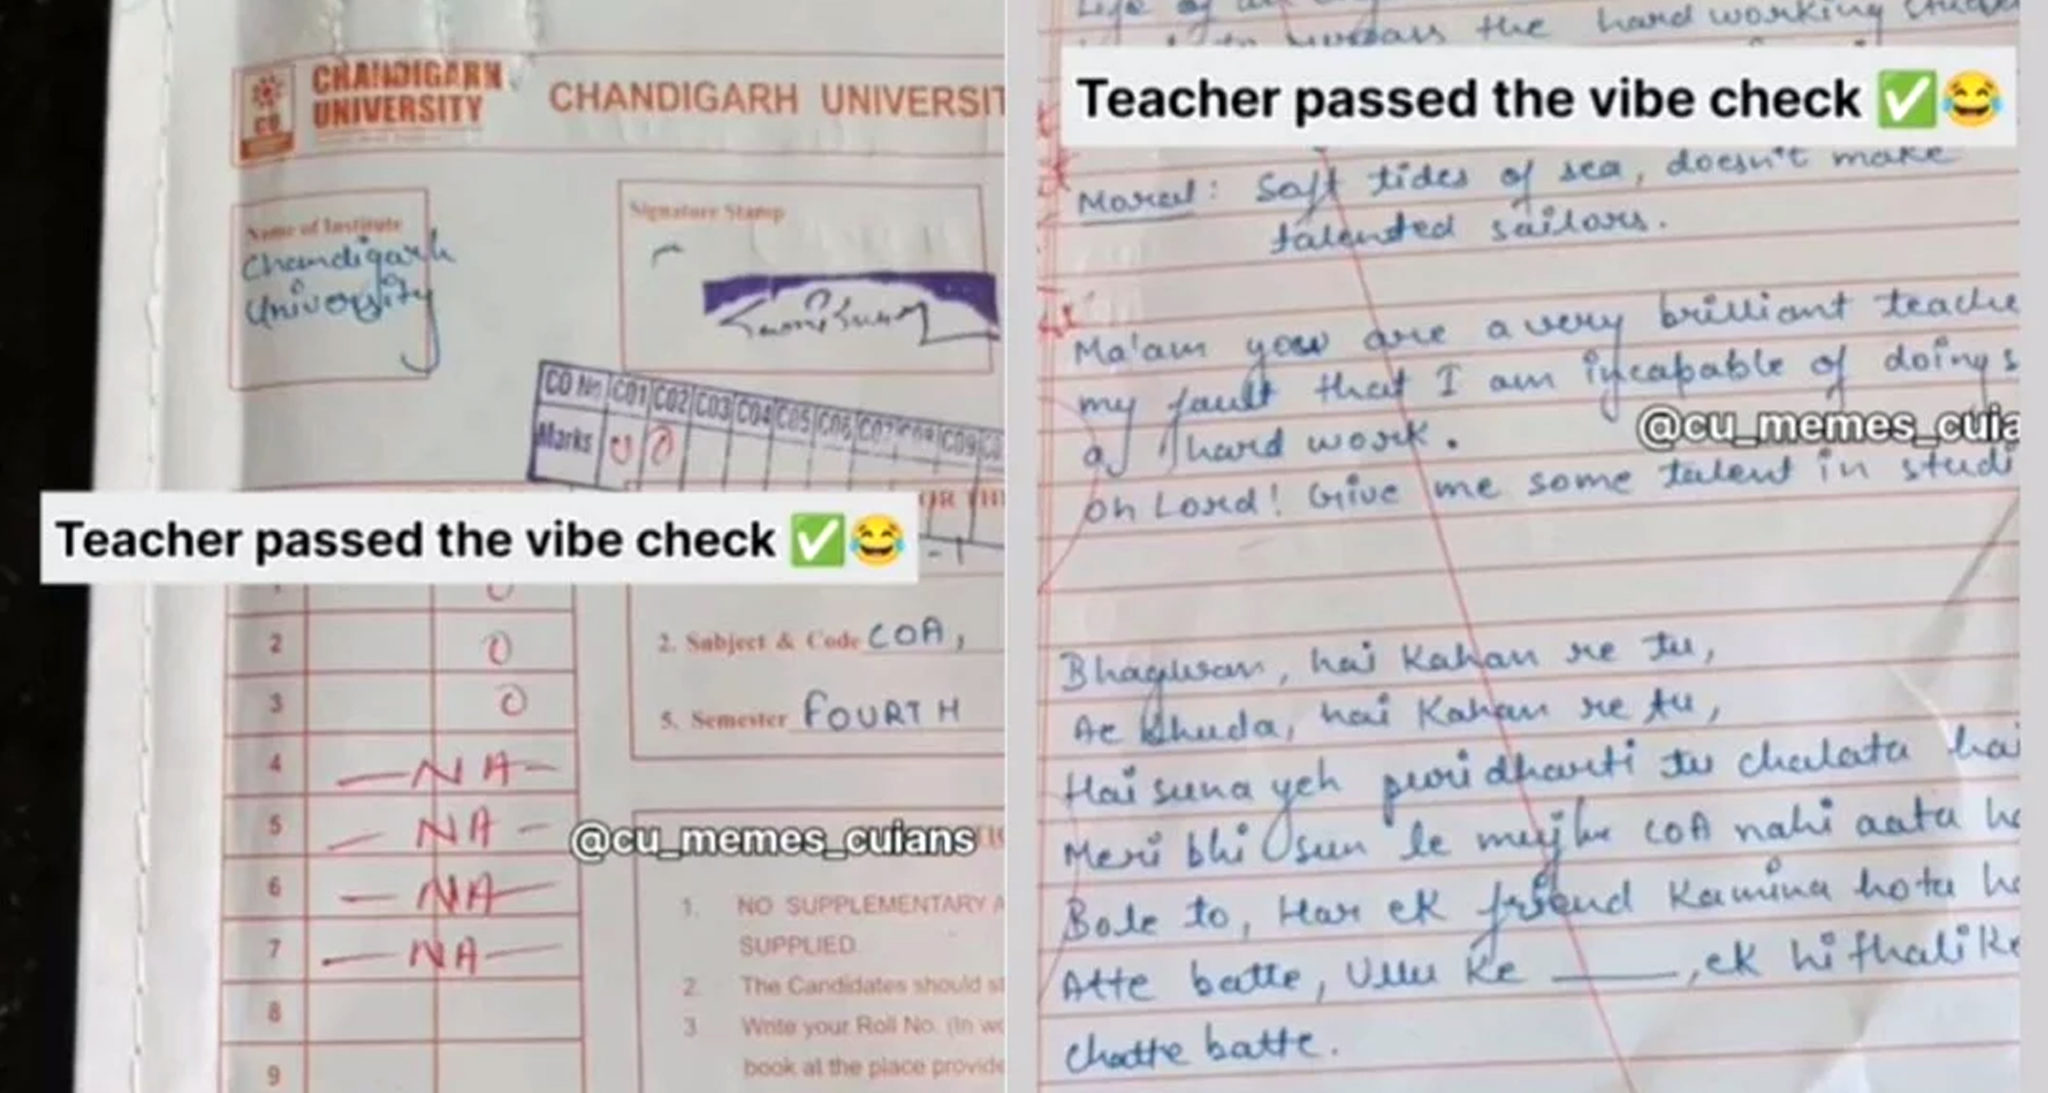 CHANDIGARH
UNIVERSITY
CU
CHANDIGARH UNIVERSIT
Name of Institute
Chandigarh
University
Signature Stamp
CO No CO1 CO2 CO3 CO4 CO5 CO6 CO7 CO8 CO9
Marks 0 0
OR TH
Teacher passed the vibe check ✅😂
1 0
2 0
3 0
4 — NA —
5 — NA —
6 — NA —
7 — NA —
8
9
2. Subject & Code COA,
5. Semester FOURTH
@cu_memes_cuians
1. NO SUPPLEMENTARY A
SUPPLIED.
2. The Candidates should st
3 Write your Roll No. (In wo
book at the place provide
the hard working
Teacher passed the vibe check ✅😂
Moral: Soft tides of sea, doesn't make
talented sailors.
Ma'am you are a very brilliant teache
my fault that I am incapable of doing s
of hard work.
@cu_memes_cuia
Oh Lord! Give me some talent in studi
Bhagwan, hai Kahan re tu,
Ae khuda, hai Kahan re tu,
Hai suna yeh puri dharti tu chalata hai
Meri bhi sun le mujhe COA nahi aata ha
Bole to, Har ek friend Kamina hota ha
Atte batte, Ullu Ke ____, ek hi thali Ke
chatte batte.